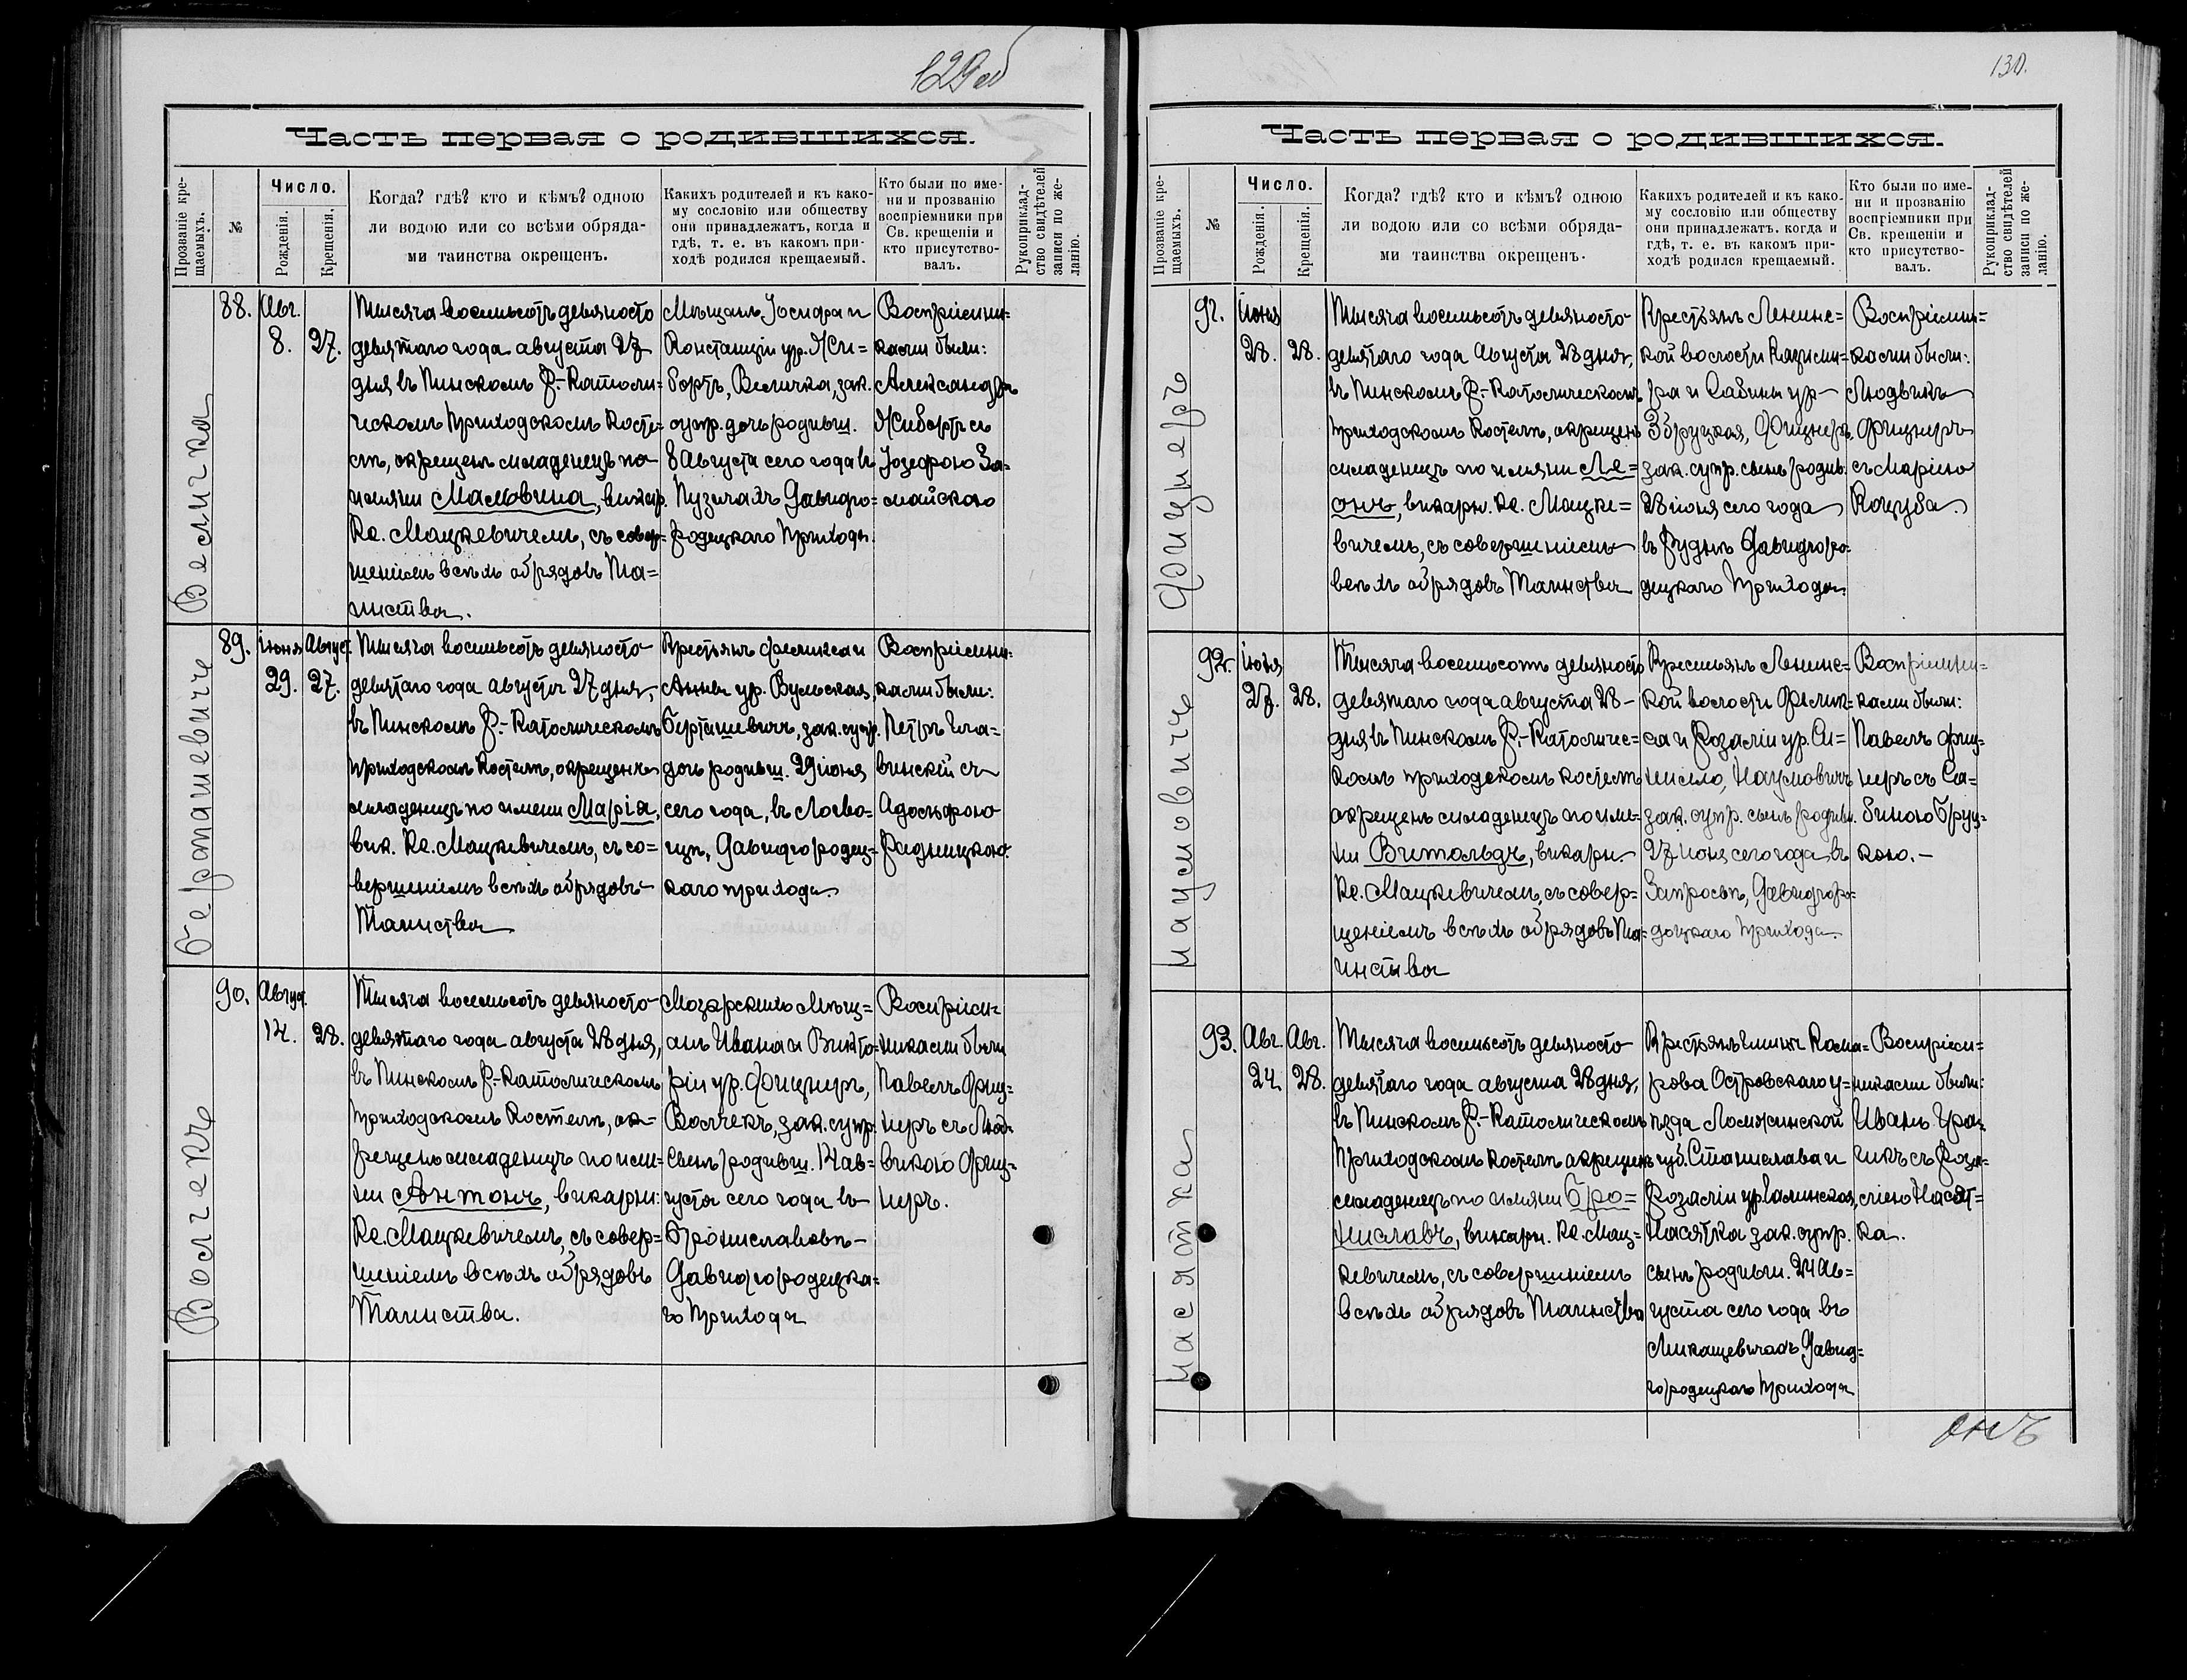 129 об
Часть первая о родившихся.
Прозваніе кре-
щаемыхъ.
№
Число.
Рожденія.
Крещенія.
Когда? гдѣ? кто и кѣмъ? одною
ли водою или со всѣми обряда-
ми таинства окрещенъ.
Какихъ родителей и къ како-
му сословію или обществу
они принадлежатъ, когда и
гдѣ, т. е. въ какомъ при-
ходѣ родился крещаемый.
Кто были по име-
ни и прозванію
воспріемники при
Св. крещеніи и
кто присутство-
валъ.
Рукоприклад-
ство свидѣтелей
записи по же-
ланію.
Величка
88.
Авг.
8.
27.
Тысяча восемьсотъ девяносто
девятаго года августа 27
дня въ Пинскомъ Р.-Католи-
ческомъ приходскомъ косте-
лѣ, окрещенъ младенецъ по
имени Мальвина, викар.
Кс. Мацкевичемъ, съ совер-
шеніемъ всѣхъ обрядовъ Та-
инства.
Мѣщанъ Іосифа и
Констанціи ур. Жи=
бортъ, Величка, зак.
супр. дочь родивш.
8 Августа сего года въ
Пузичахъ Давидго=
родецкаго прихода.
Воспріемни=
ками были:
Александръ
Жибортъ съ
Іозефою За=
майскою
Берташевичъ
89.
Іюня
29.
Август.
27.
Тысяча восемьсотъ девяносто
девятаго года августа 27 дня,
въ Пинскомъ Р.-Католическомъ
приходскомъ костелѣ, окрещенъ
младенецъ по имени Марія,
вик. Кс. Мацкевичемъ, съ со=
вершеніемъ всѣхъ обрядовъ
Таинства
Крестьянъ Феликса и
Анны ур. Вульская,
Берташевичъ, зак. супр.
дочь родивш. 29 іюня
сего года, въ
Давидгородец=
каго прихода
Воспріемни=
ками были:
Петръ
съ
Адольфою
Радницкою.
Волчекъ
90.
Август.
14.
28.
Тысяча восемьсотъ девяносто
девятаго года августа 28 дня,
въ Пинскомъ Р.-Католическомъ
приходскомъ костелѣ, ок=
рещенъ младенецъ по име=
ни Антонъ, викарн.
Кс. Мацкевичемъ, съ совер=
шеніемъ всѣхъ обрядовъ
Таинства.
Мозырскихъ Мѣщ=
анъ Ивана и Викто=
ріи ур. Фицнеръ,
Волчекъ, зак. супр.
сынъ родивш. 14 ав=
густа сего года въ
Брониславовѣ
Давидгородецка=
го прихода
Воспріем=
никами были
Павелъ Фиц=
неръ съ Люд=
викою Фиц=
неръ.
130.
Часть первая о родившихся.
Прозваніе кре-
щаемыхъ.
№
Число.
Рожденія.
Крещенія.
Когда? гдѣ? кто и кѣмъ? одною
ли водою или со всѣми обряда-
ми таинства окрещенъ.
Какихъ родителей и къ како-
му сословію или обществу
они принадлежатъ. когда и
гдѣ, т. е. въ какомъ при-
ходѣ родился крещаемый.
Кто были по име-
ни и прозванію
воспріемники при
Св. крещеніи и
кто присутство-
валъ.
Рукоприклад-
ство свидѣтелей
записи по же-
ланію.
Фицнеръ
91.
Іюня
28.
28.
Тысяча восемьсотъ девяносто
девятаго года Августа 28 дня,
въ Пинскомъ Р.-Католическомъ
приходскомъ костелѣ, окрещенъ
младенецъ по имени Ле=
онъ, викарн. Кс. Мацке=
вичемъ, съ совершеніемъ
всѣхъ обрядовъ Таинства
Крестьянъ Ленинс=
кой волости Казими=
ра и Сабины ур.
Збруцкая, Фицнеръ,
зак. супр. сынъ родив.
28 іюня сего года
въ Руднѣ Давидгоро=
децкаго прихода.
Воспріемни=
ками были:
Людвикъ
Фицнеръ
съ Маріею
Коцуба.
Наумовичъ
92.
Іюня
27.
28.
Тысяча восемьсотъ девяносто
девятаго года августа 28
дня въ Пинскомъ Р.-Католичес=
комъ приходскомъ костелѣ
окрещенъ младенецъ по име=
ни Витольдъ, викарн.
Кс. Мацкевичемъ, съ совер=
шеніемъ всѣхъ обрядовъ Та=
инства
Крестьянъ Ленинс=
кой волости Фелик=
са и Розаліи ур. Си=
Наумовичъ
зак. супр. сынъ родивш.
27 Іюня сего года въ
Запросьѣ, Давидгоро=
децкаго прихода
Воспріемни=
ками были:
Павелъ Фиц=
неръ съ Са=
биною Бруц=
кою.
Насятка
93.
Авг.
24.
Авг.
28.
Тысяча восемьсотъ девяносто
девятаго года августа 28 дня,
въ Пинскомъ Р.-Католическомъ
приходскомъ костелѣ окрещенъ
младенецъ по имени Бро=
ниславъ, викарн. Кс. Мац=
кевичемъ, съ совершеніемъ
всѣхъ обрядовъ Таинства
Крестьянъ гмины Кома=
рова Островскаго у=
ѣзда Ломжинской
губ. Станислава и
Розаліи ур.
Насятка зак. супр.
сынъ родивш. 24 Ав=
густа сего года въ
Микашевичахъ Давид=
городецкаго прихода
Воспріем=
никами были:
Иванъ
съ Роза=
ліею Насят=
ка.